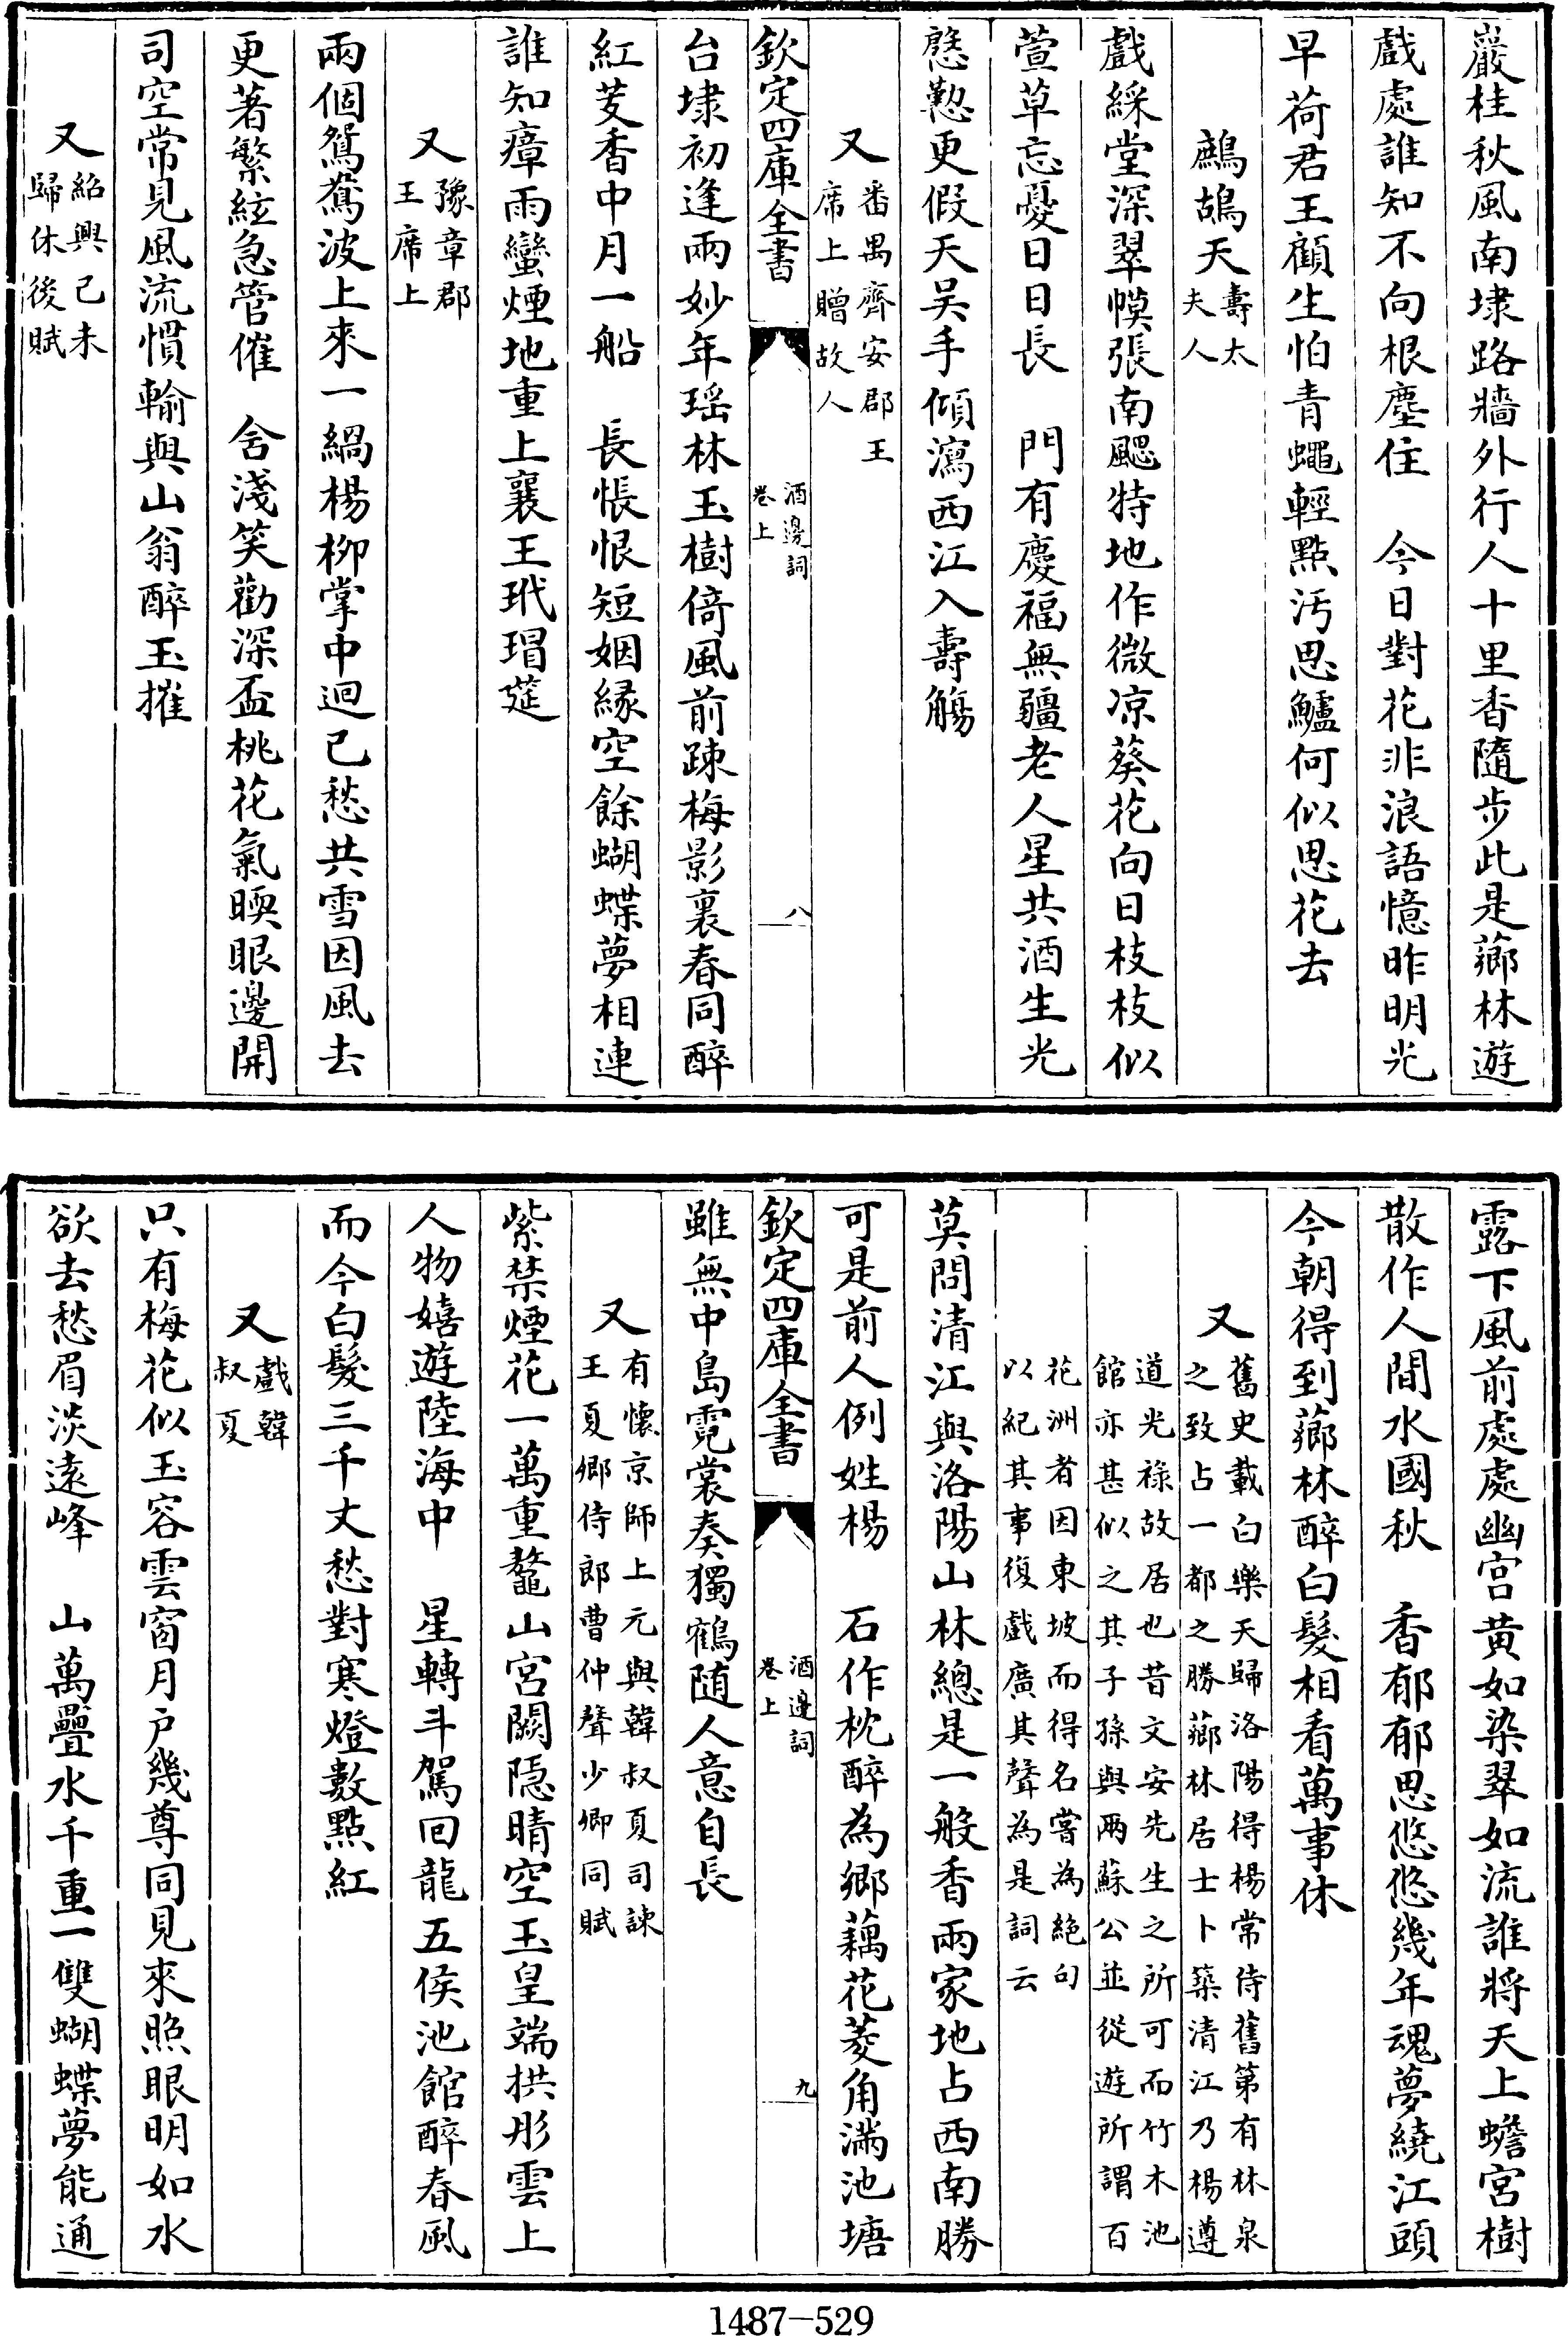 巖桂秋風南埭路牆外行人十里香隨步此是薌林遊
戲處誰知不向根塵住　今日對花非浪語憶昨明光
早荷君王顧生怕青蠅輕點汚思鱸何似思花去
鷓鴣天壽太夫人
戲綵堂深翠幙張南颸特地作微凉葵花向日枝枝似
萱草忘憂日日長　門有慶福無疆老人星共酒生光
慇懃更假天吴手傾瀉西江入壽觴
又番禺齊安郡王席上贈故人
欽定四庫全書　酒邊詞卷上　八
台埭初逢兩妙年瑶林玉樹倚風前踈梅影裏春同醉
紅芰香中月一船　長悵恨短姻縁空餘蝴蝶夢相連
誰知瘴雨蠻煙地重上襄王玳瑁筵
又豫章郡王席上
兩個鴛鴦波上來一緺楊柳掌中迴已愁共雪因風去
更著繁絃急管催　舍淺笑勸深盃桃花氣暎眼邊開
司空常見風流慣輸與山翁醉玉摧
又紹興己未歸休後賦
露下風前處處幽宫黄如染翠如流誰將天上蟾宮樹
散作人間水國秋　香郁郁思悠悠幾年魂夢繞江頭
今朝得到薌林醉白髮相看萬事休
又舊史載白樂天歸洛陽得楊常侍舊第有林泉之致占一都之勝薌林居士卜築清江乃楊遵
道光禄故居也昔文安先生之所可而竹木池館亦甚似之其子孫與兩蘇公並從遊所謂百
花洲者因東坡而得名嘗為絶句以紀其事復戲廣其聲為是詞云
莫問清江與洛陽山林總是一般香兩家地占西南勝
可是前人例姓楊　石作枕醉為鄉藕花菱角滿池塘
欽定四庫全書　酒邊詞卷上　九
雖無中島霓裳奏獨鶴随人意自長
又有懷京師上元與韓叔夏司諫王夏卿侍郎曹仲聲少卿同賦
紫禁煙花一萬重鼇山宮闕隠晴空玉皇端拱彤雲上
人物嬉遊陸海中　星轉斗駕回龍五侯池館醉春風
而今白髮三千丈愁對寒燈數點紅
又戲韓叔夏
只有梅花似玉容雲窗月户幾尊同見來照眼明如水
欲去愁眉淡遠峰　山萬疊水千重一雙蝴蝶夢能通
1487—529